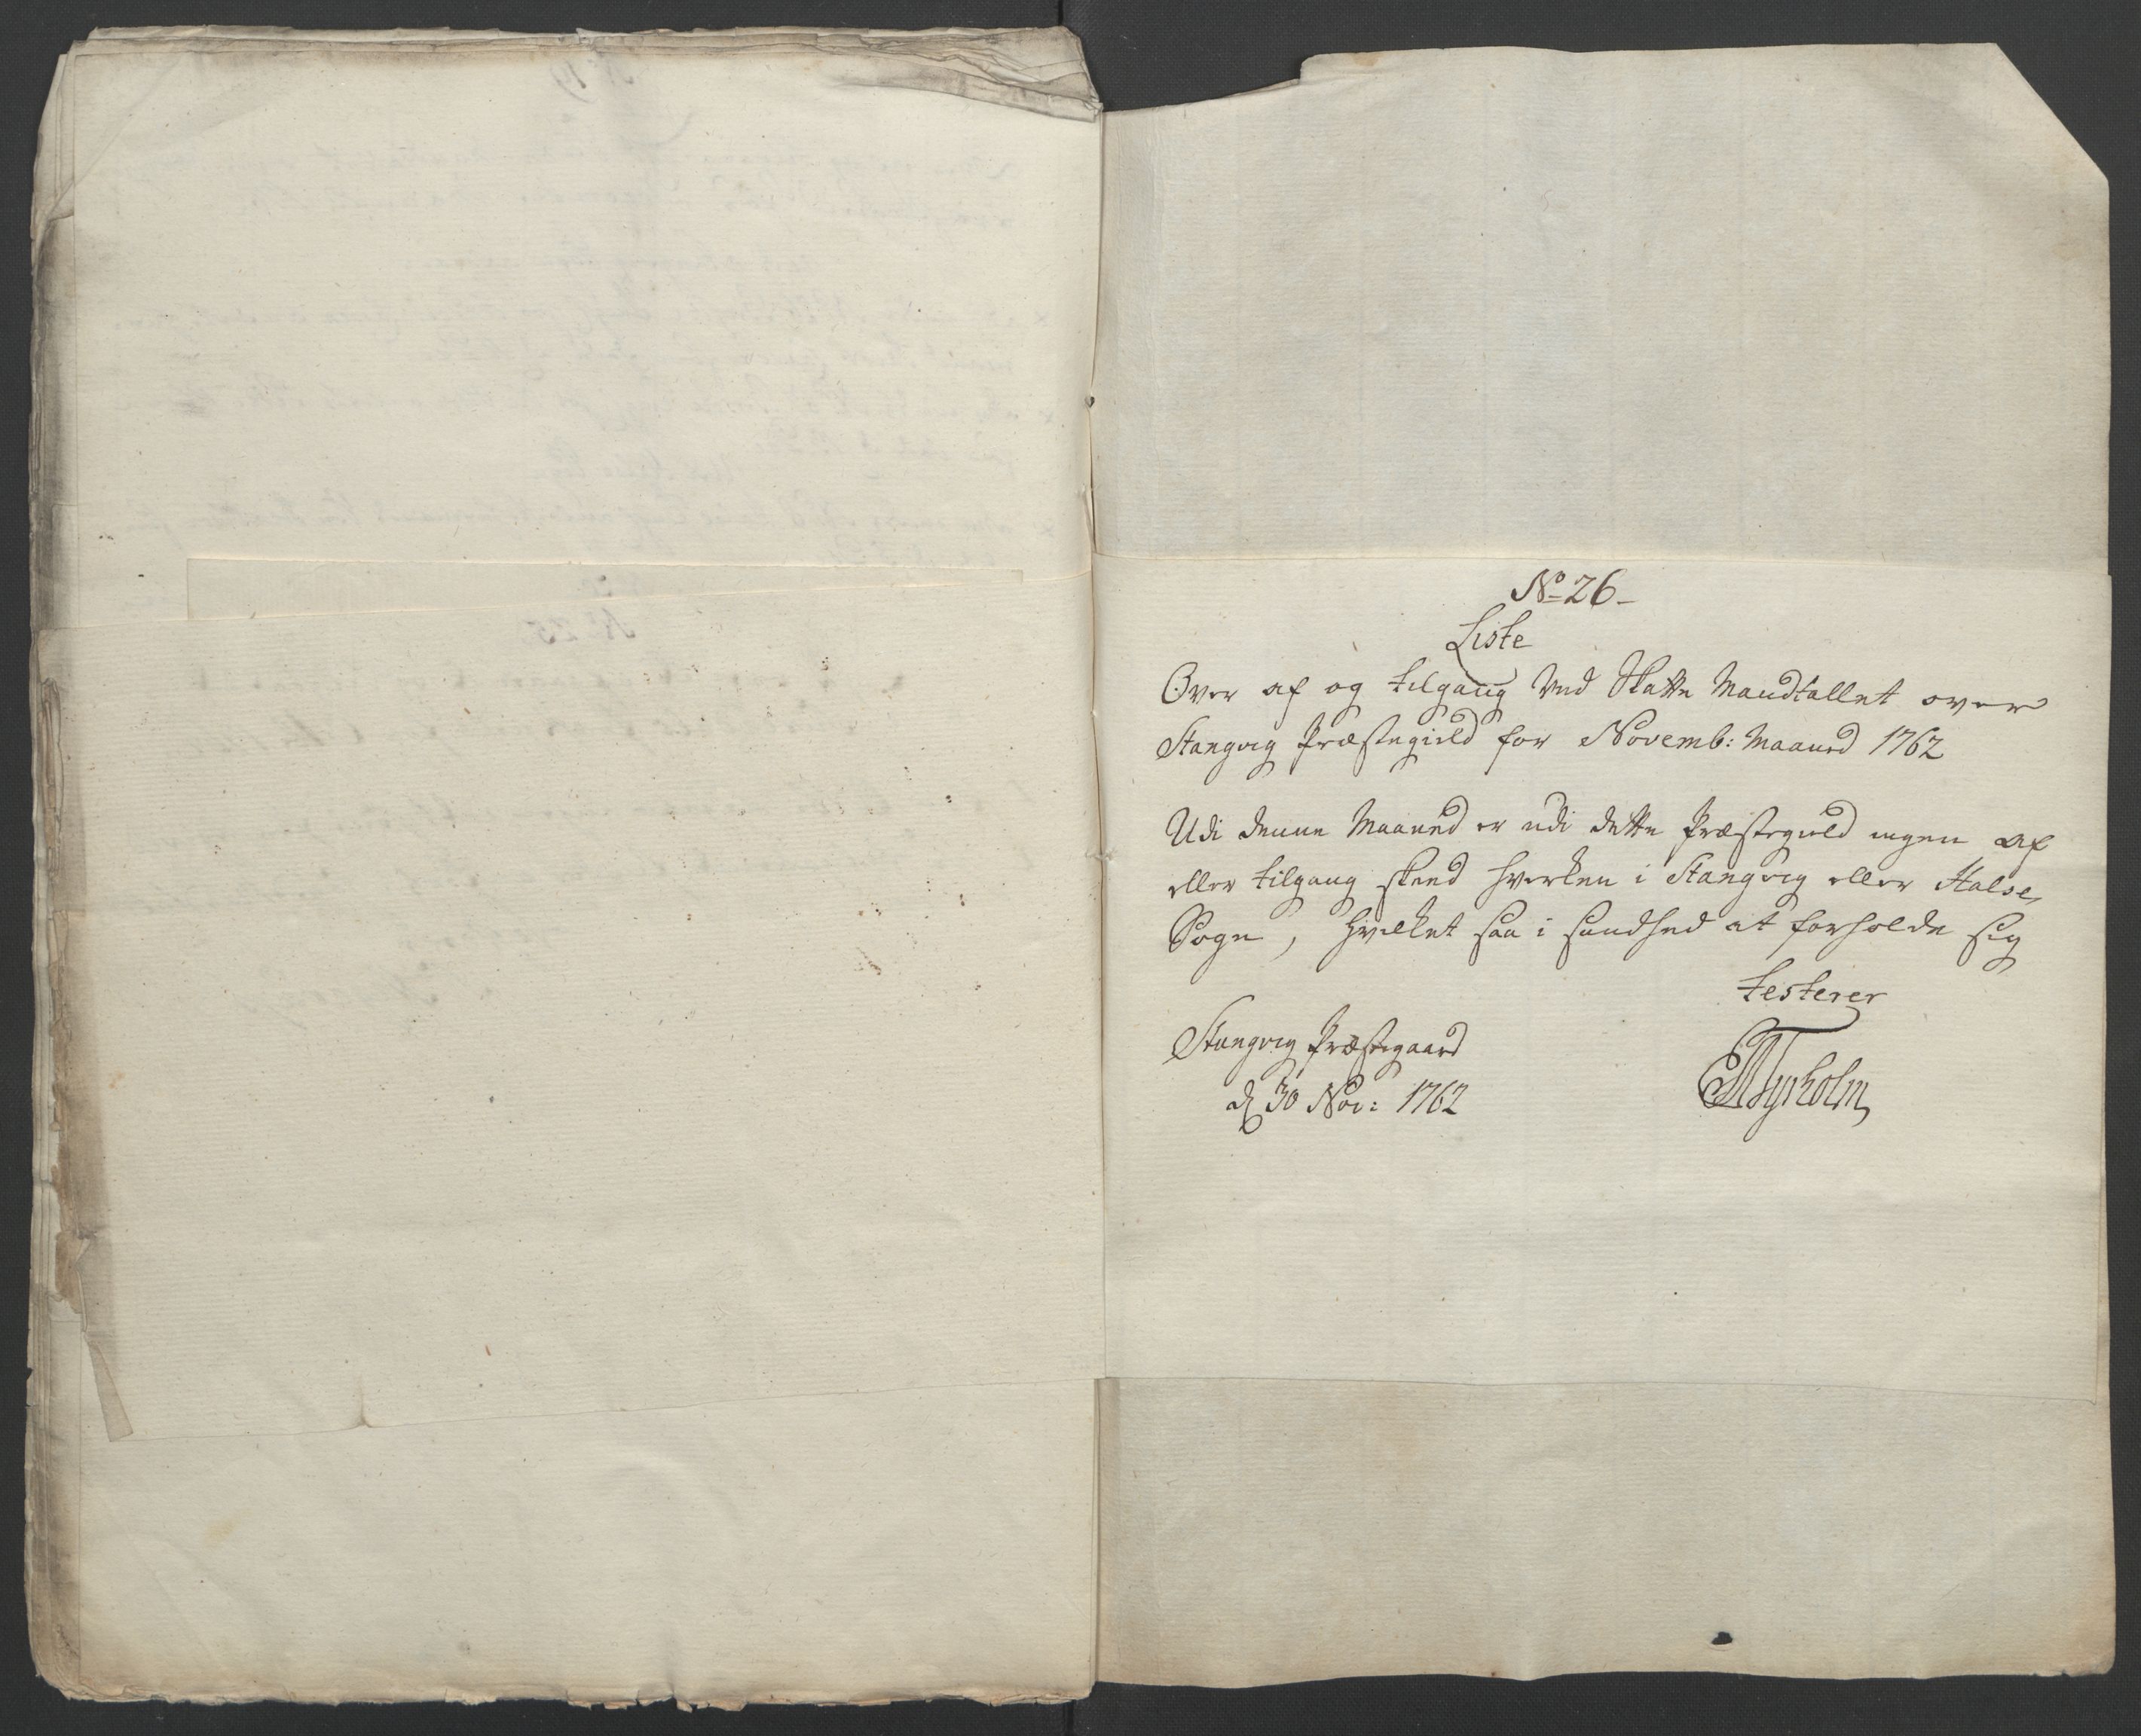 No 26-
Liste
Over af og tilgang Ved Skatte Mandtallet over
Stangvig Præstegield for Novemb: Maaned 1762
Udi denne Maaned er udi dette Præstegield ingen af
eller tilgang skeed hverken i Stangvig eller Halse,
Sogn, hvilket saa i sandhed at forholde sig
testerer
Stangvig Præstegaard
d 30 Nov: 1762
Tyrholm